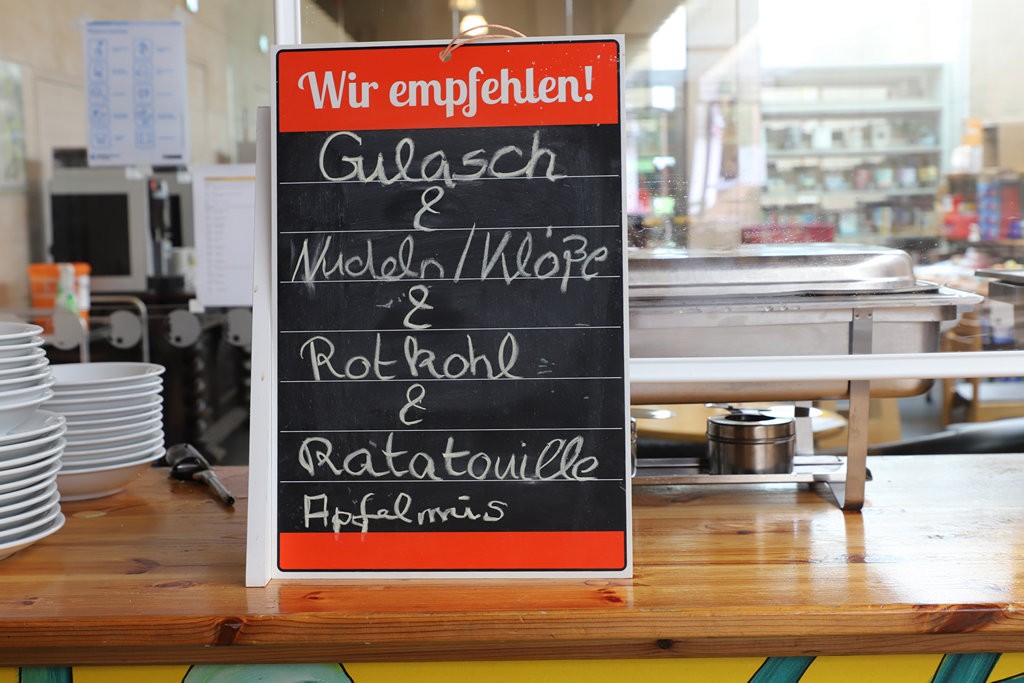 Wir empfehlen!
Gulasch
&
Nudeln/Klöße
&
Rotkohl
&
Ratatouille
Apfelmus